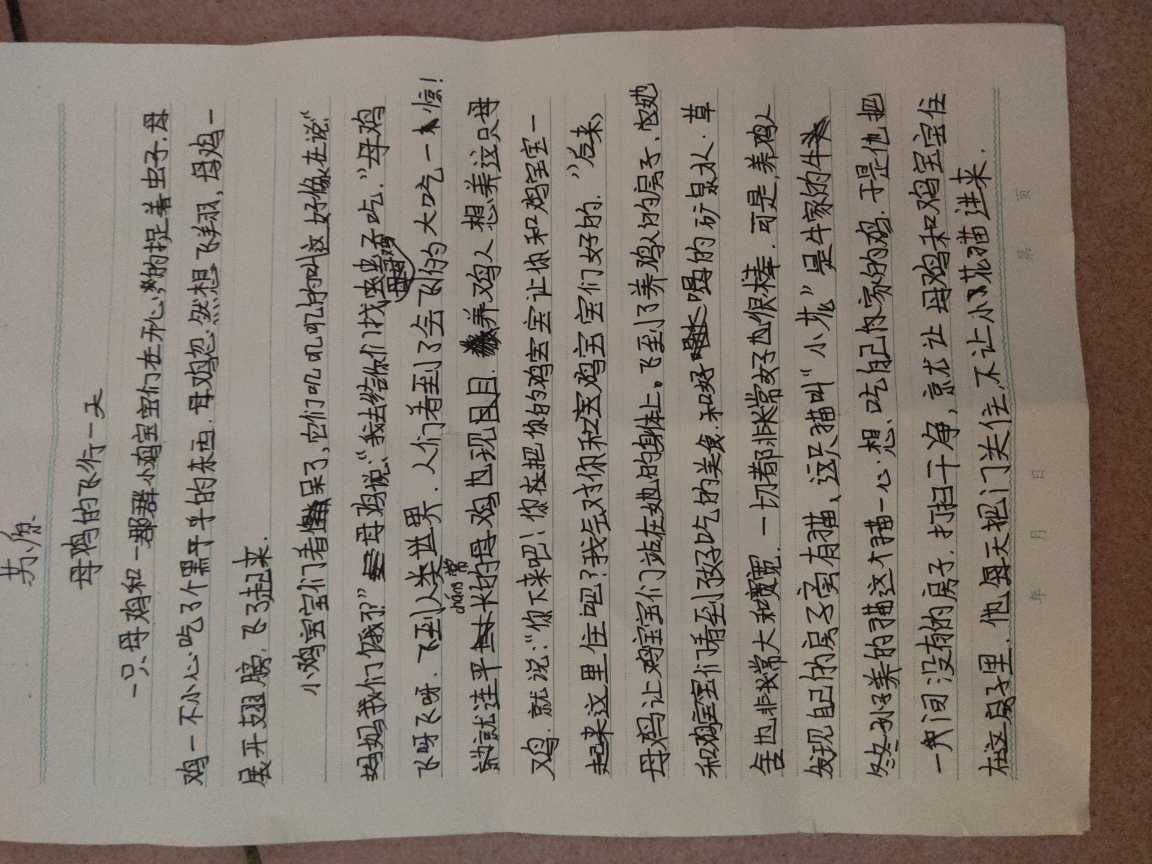 苏原
母鸡的飞行一天
一只母鸡和一群小鸡宝宝们在开心的捉着虫子.母
鸡一不小心吃了个黑乎乎的东西.母鸡忽然想飞翔,母鸡一
展开翅膀,飞了起来.
小鸡宝宝们看呆了,它们叽叽叽的叫这好像在说“
妈妈我们饿了?”母鸡说:“我去给你们找虫子吃.”母鸡
飞呀飞呀.飞到人类世界.人们看到了会飞的母鸡大吃一惊!
就连平cháng常的母鸡也现目.养鸡人想养这只母
鸡.就说:“你下来吧!你在把你的鸡宝宝让你和鸡宝宝一
起来这里住吧?我会对你和宝鸡宝宝们好的.”后来,
母鸡让鸡宝宝们站在她的身体上。飞到了养鸡人的房子.
和鸡宝宝们看到了好吃的美食.和好喝的矿泉水.草
舍也非常大和宽.一切都非常好也很棒.可是,养鸡人
发现自己的房子害有猫、这只猫叫“小花”是牛家的牛
美的猫这个猫一心想、吃自己你家的鸡.于是他把
一间没有的房子.打扫干净,京尤让母鸡和鸡宝宝住
在这房子里.他每天把门关住,不让小花猫进来.
年 月 日 第 页